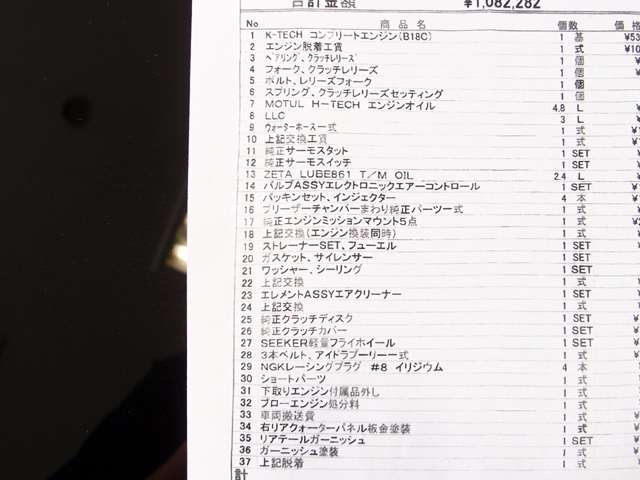 合計金額 ¥1,082,282
No 商品名 個数 価格
1 K-TECH コンプリートエンジン(B18C) 1 基 ¥53
2 エンジン脱着工賃 1 式 ¥10
3 ベアリング、クラッチレリーズ 1 個 ¥
4 フォーク、クラッチレリーズ 1 個 ¥
5 ボルト、レリーズフォーク 1 個
6 スプリング、クラッチレリーズセッティング 1 個
7 MOTUL H-TECH エンジンオイル 4.8 L ¥
8 LLC 3 L ¥
9 ウォーターホース一式 1 式 ¥1
10 上記交換工賃 1 式 ¥
11 純正サーモスタット 1 SET ¥
12 純正サーモスイッチ 1 SET ¥
13 ZETA LUBE861 T/M OIL 2.4 L ¥
14 バルブASSYエレクトロニックエアーコントロール 1 SET ¥1
15 パッキンセット、インジェクター 4 本 ¥
16 ブリーザーチャンバーまわり純正パーツ一式 1 式 ¥
17 純正エンジンミッションマウント5点 1 式 ¥2
18 上記交換(エンジン換装同時) 1 式 ¥
19 ストレーナーSET、フューエル 1 SET ¥
20 ガスケット、サイレンサー 1 SET
21 ワッシャー、シーリング 1 SET
22 上記交換 1 式 ¥
23 エレメントASSYエアクリーナー 1 SET ¥
24 上記交換 1 式
25 純正クラッチディスク 1 SET ¥
26 純正クラッチカバー 1 SET ¥
27 SEEKER軽量フライホイール 1 SET ¥
28 3本ベルト、アイドラプーリー一式 1 式 ¥
29 NGKレーシングプラグ #8 イリジウム 4 本 ¥
30 ショートパーツ 1 式 ¥
31 下取りエンジン付属品外し 1 式 ¥
32 ブローエンジン処分料 1 式 ¥
33 車両搬送費 1 式 ¥
34 右リアクォーターパネル板金塗装 1 式 ¥
35 リアテールガーニッシュ 1 SET ¥
36 ガーニッシュ塗装 1 式 ¥
37 上記脱着 1 式 ¥
計